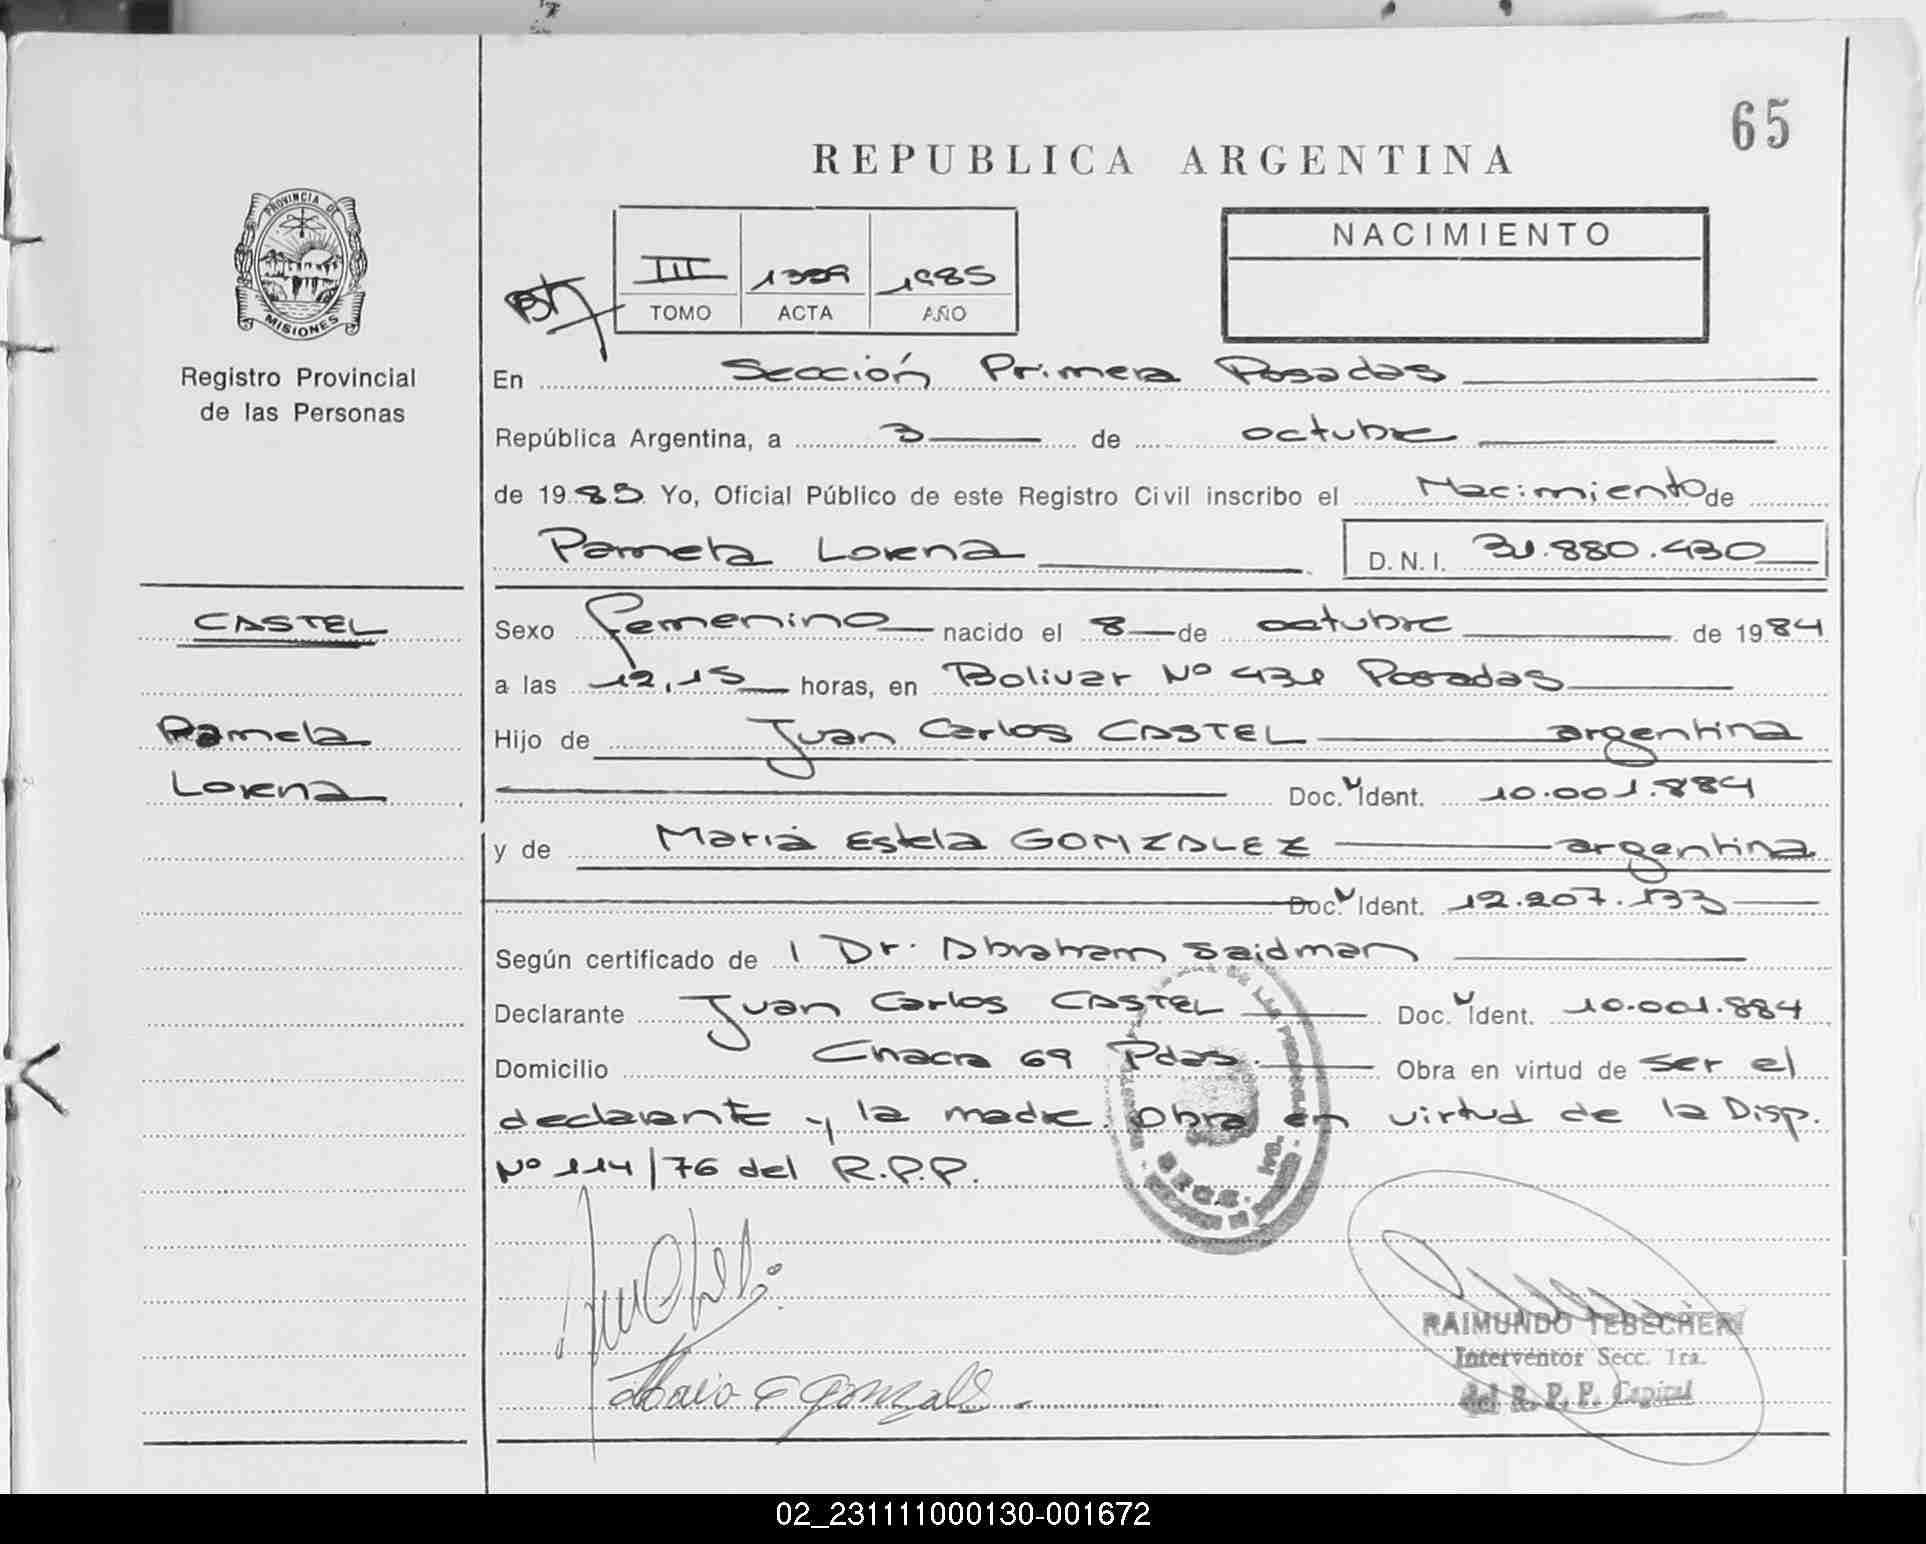 65
REPUBLICA ARGENTINA
PROVINCIA DE
MISIONES
Registro Provincial
de las Personas
III 1399 1985
TOMO ACTA AÑO
NACIMIENTO
En Sección Primera Posadas
República Argentina, a 3 de octubre
de 1985 Yo, Oficial Público de este Registro Civil inscribo el Nacimiento de
Pamela Lorena D.N.I. 31.880.430
CASTEL
Pamela
Lorena
Sexo femenino nacido el 8 de octubre de 1984
a las 12,15 horas, en Bolivar Nº 431 Posadas
Hijo de Juan Carlos CASTEL argentina
Doc. Ident. 10.001.884
y de Maria Estela GONZALEZ argentina
Doc. Ident. 12.207.133
Según certificado de l Dr. Abraham Saidman
Declarante Juan Carlos CASTEL Doc. Ident. 10.001.884
Domicilio Chacra 69 Pdas. Obra en virtud de ser el
declarante y la madre. Obra en virtud de la Disp.
Nº 114/76 del R.P.P.
RAIMUNDO TEBECHERI
Interventor Secc. 1ra.
del R. P. P. Capital
02_231111000130-001672